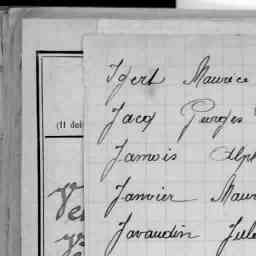 Igert Maurice
Jacq Georges
(Il doit
Jamois Alph
Janvier Maur
Ve
Javaudin Jule